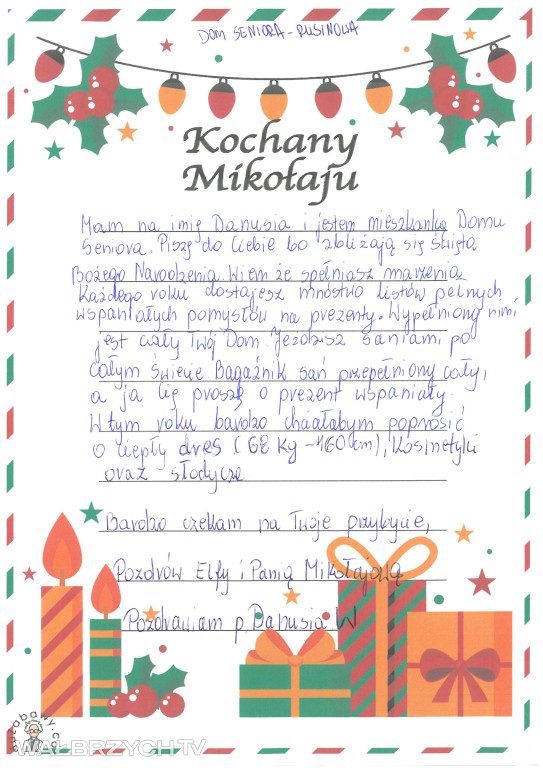 DOM SENIORA - RUSINOWA
Kochany
Mikołaju
Mam na imię Danusia i jestem mieszkanką Domu
Seniora. Piszę do Ciebie bo zbliżają się Święta
Bożego Narodzenia. Wiem że spełniasz marzenia
Każdego roku dostajesz mnóstwo listów pełnych
wspaniałych pomysłów na prezenty. Wypełniony nimi
jest cały Twój Dom. Jeździsz saniami, po
całym świecie Bagażnik sań przepełniony cały,
a ja Cię proszę o prezent wspaniały.
W tym roku bardzo chciałabym poprosić
o ciepły dres (68 kg - 160 cm), kosmetyki
oraz słodycze
Bardzo czekam na Twoje przybycie,
Pozdrów Elfy i Panią Mikołajową
Pozdrawiam p. Danusia W
WAŁBRZYCH.TV